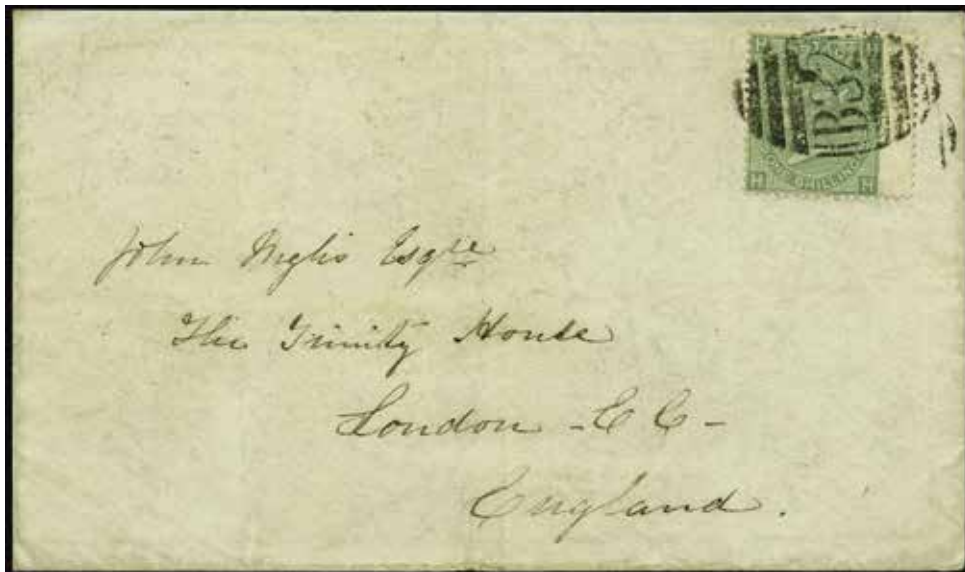 B32
ONE SHILLING
John Inglis Esqre
The Trinity House
London - E C -
England.